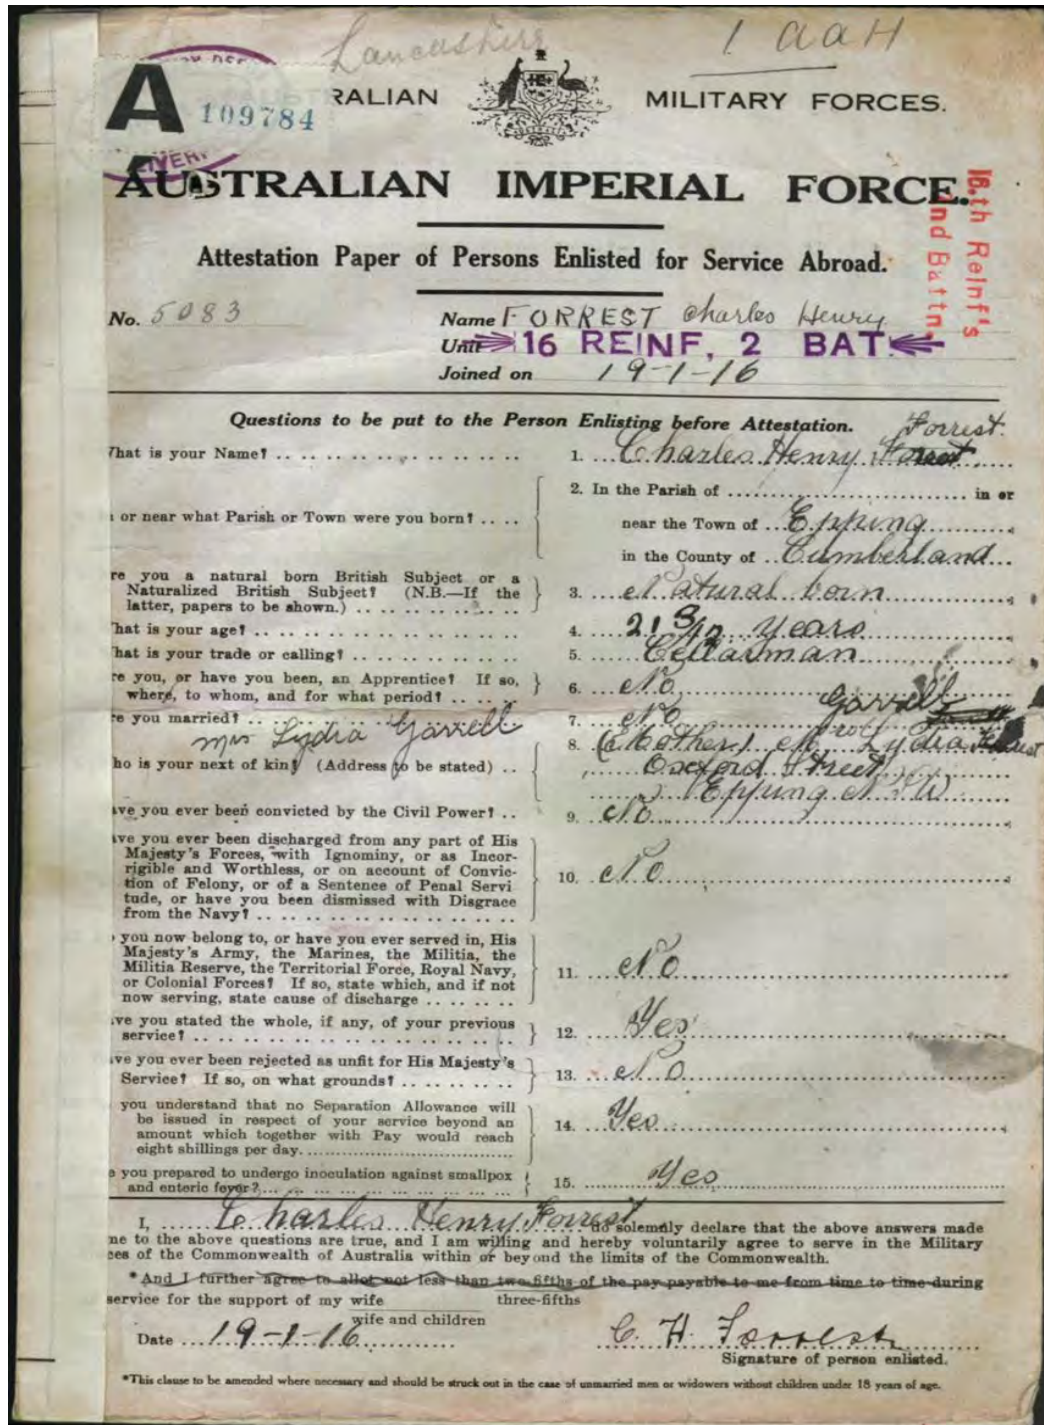 Lancashire
1 aaH
A 109784
RALIAN MILITARY FORCES.
AUSTRALIAN IMPERIAL FORCE.
16.th Reinf's
nd Battn.
Attestation Paper of Persons Enlisted for Service Abroad.
No. 5083 Name FORREST Charles Henry
Unit 16 REINF, 2 BAT.
Joined on 19-1-16
Questions to be put to the Person Enlisting before Attestation.
Forrest.
hat is your Name? 1. Charles Henry
2. In the Parish of in or
or near what Parish or Town were you born? near the Town of Epping
in the County of Cumberland
re you a natural born British Subject or a
Naturalized British Subject? (N.B.—If the
latter, papers to be shown.) 3. Natural born
hat is your age? 4. 21 years
hat is your trade or calling? 5. Cellarman
re you, or have you been, an Apprentice? If so,
where, to whom, and for what period? 6. No
Garrell
re you married? 7. No
Mrs Lydia Garrell
8. (Mother) Lydia
ho is your next of kin? (Address to be stated) Oxford Street
Epping N.S.W
ave you ever been convicted by the Civil Power? 9. No
ave you ever been discharged from any part of His
Majesty's Forces, with Ignominy, or as Incor-
rigible and Worthless, or on account of Convic-
tion of Felony, or of a Sentence of Penal Servi
tude, or have you been dismissed with Disgrace
from the Navy? 10. No
you now belong to, or have you ever served in, His
Majesty's Army, the Marines, the Militia, the
Militia Reserve, the Territorial Force, Royal Navy,
or Colonial Forces? If so, state which, and if not
now serving, state cause of discharge 11. No
ve you stated the whole, if any, of your previous
service? 12. Yes
ave you ever been rejected as unfit for His Majesty's
Service? If so, on what grounds? 13. No
you understand that no Separation Allowance will
be issued in respect of your service beyond an
amount which together with Pay would reach
eight shillings per day. 14. Yes
e you prepared to undergo inoculation against smallpox
and enteric fever? 15. Yes
I, Charles Henry Forrest do solemnly declare that the above answers made
me to the above questions are true, and I am willing and hereby voluntarily agree to serve in the Military
ces of the Commonwealth of Australia within or beyond the limits of the Commonwealth.
*And I further agree to allot not less than two-fifths of the pay payable to me from time to time during
service for the support of my wife three-fifths
wife and children
Date 19-1-16 C. H. Forrest
Signature of person enlisted.
*This clause to be amended where necessary and should be struck out in the case of unmarried men or widowers without children under 18 years of age.